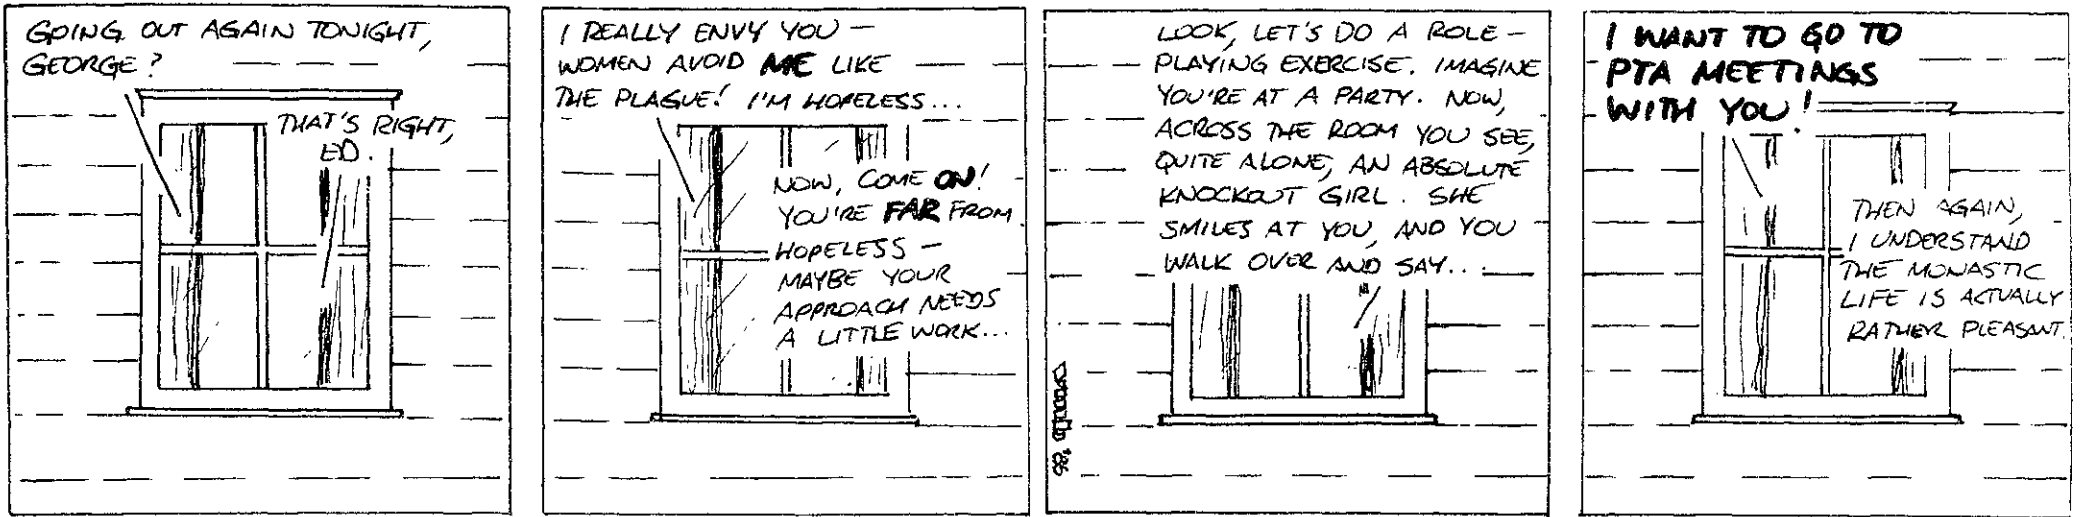 GOING OUT AGAIN TONIGHT,
GEORGE?
THAT'S RIGHT,
ED.
I REALLY ENVY YOU —
WOMEN AVOID ME LIKE
THE PLAGUE! I'M HOPELESS...
NOW, COME ON!
YOU'RE FAR FROM
HOPELESS —
MAYBE YOUR
APPROACH NEEDS
A LITTLE WORK...
LOOK, LET'S DO A ROLE-
PLAYING EXERCISE. IMAGINE
YOU'RE AT A PARTY. NOW,
ACROSS THE ROOM YOU SEE,
QUITE ALONE, AN ABSOLUTE
KNOCKOUT GIRL. SHE
SMILES AT YOU, AND YOU
WALK OVER AND SAY...
'86
I WANT TO GO TO
PTA MEETINGS
WITH YOU!
THEN AGAIN,
I UNDERSTAND
THE MONASTIC
LIFE IS ACTUALLY
RATHER PLEASANT.